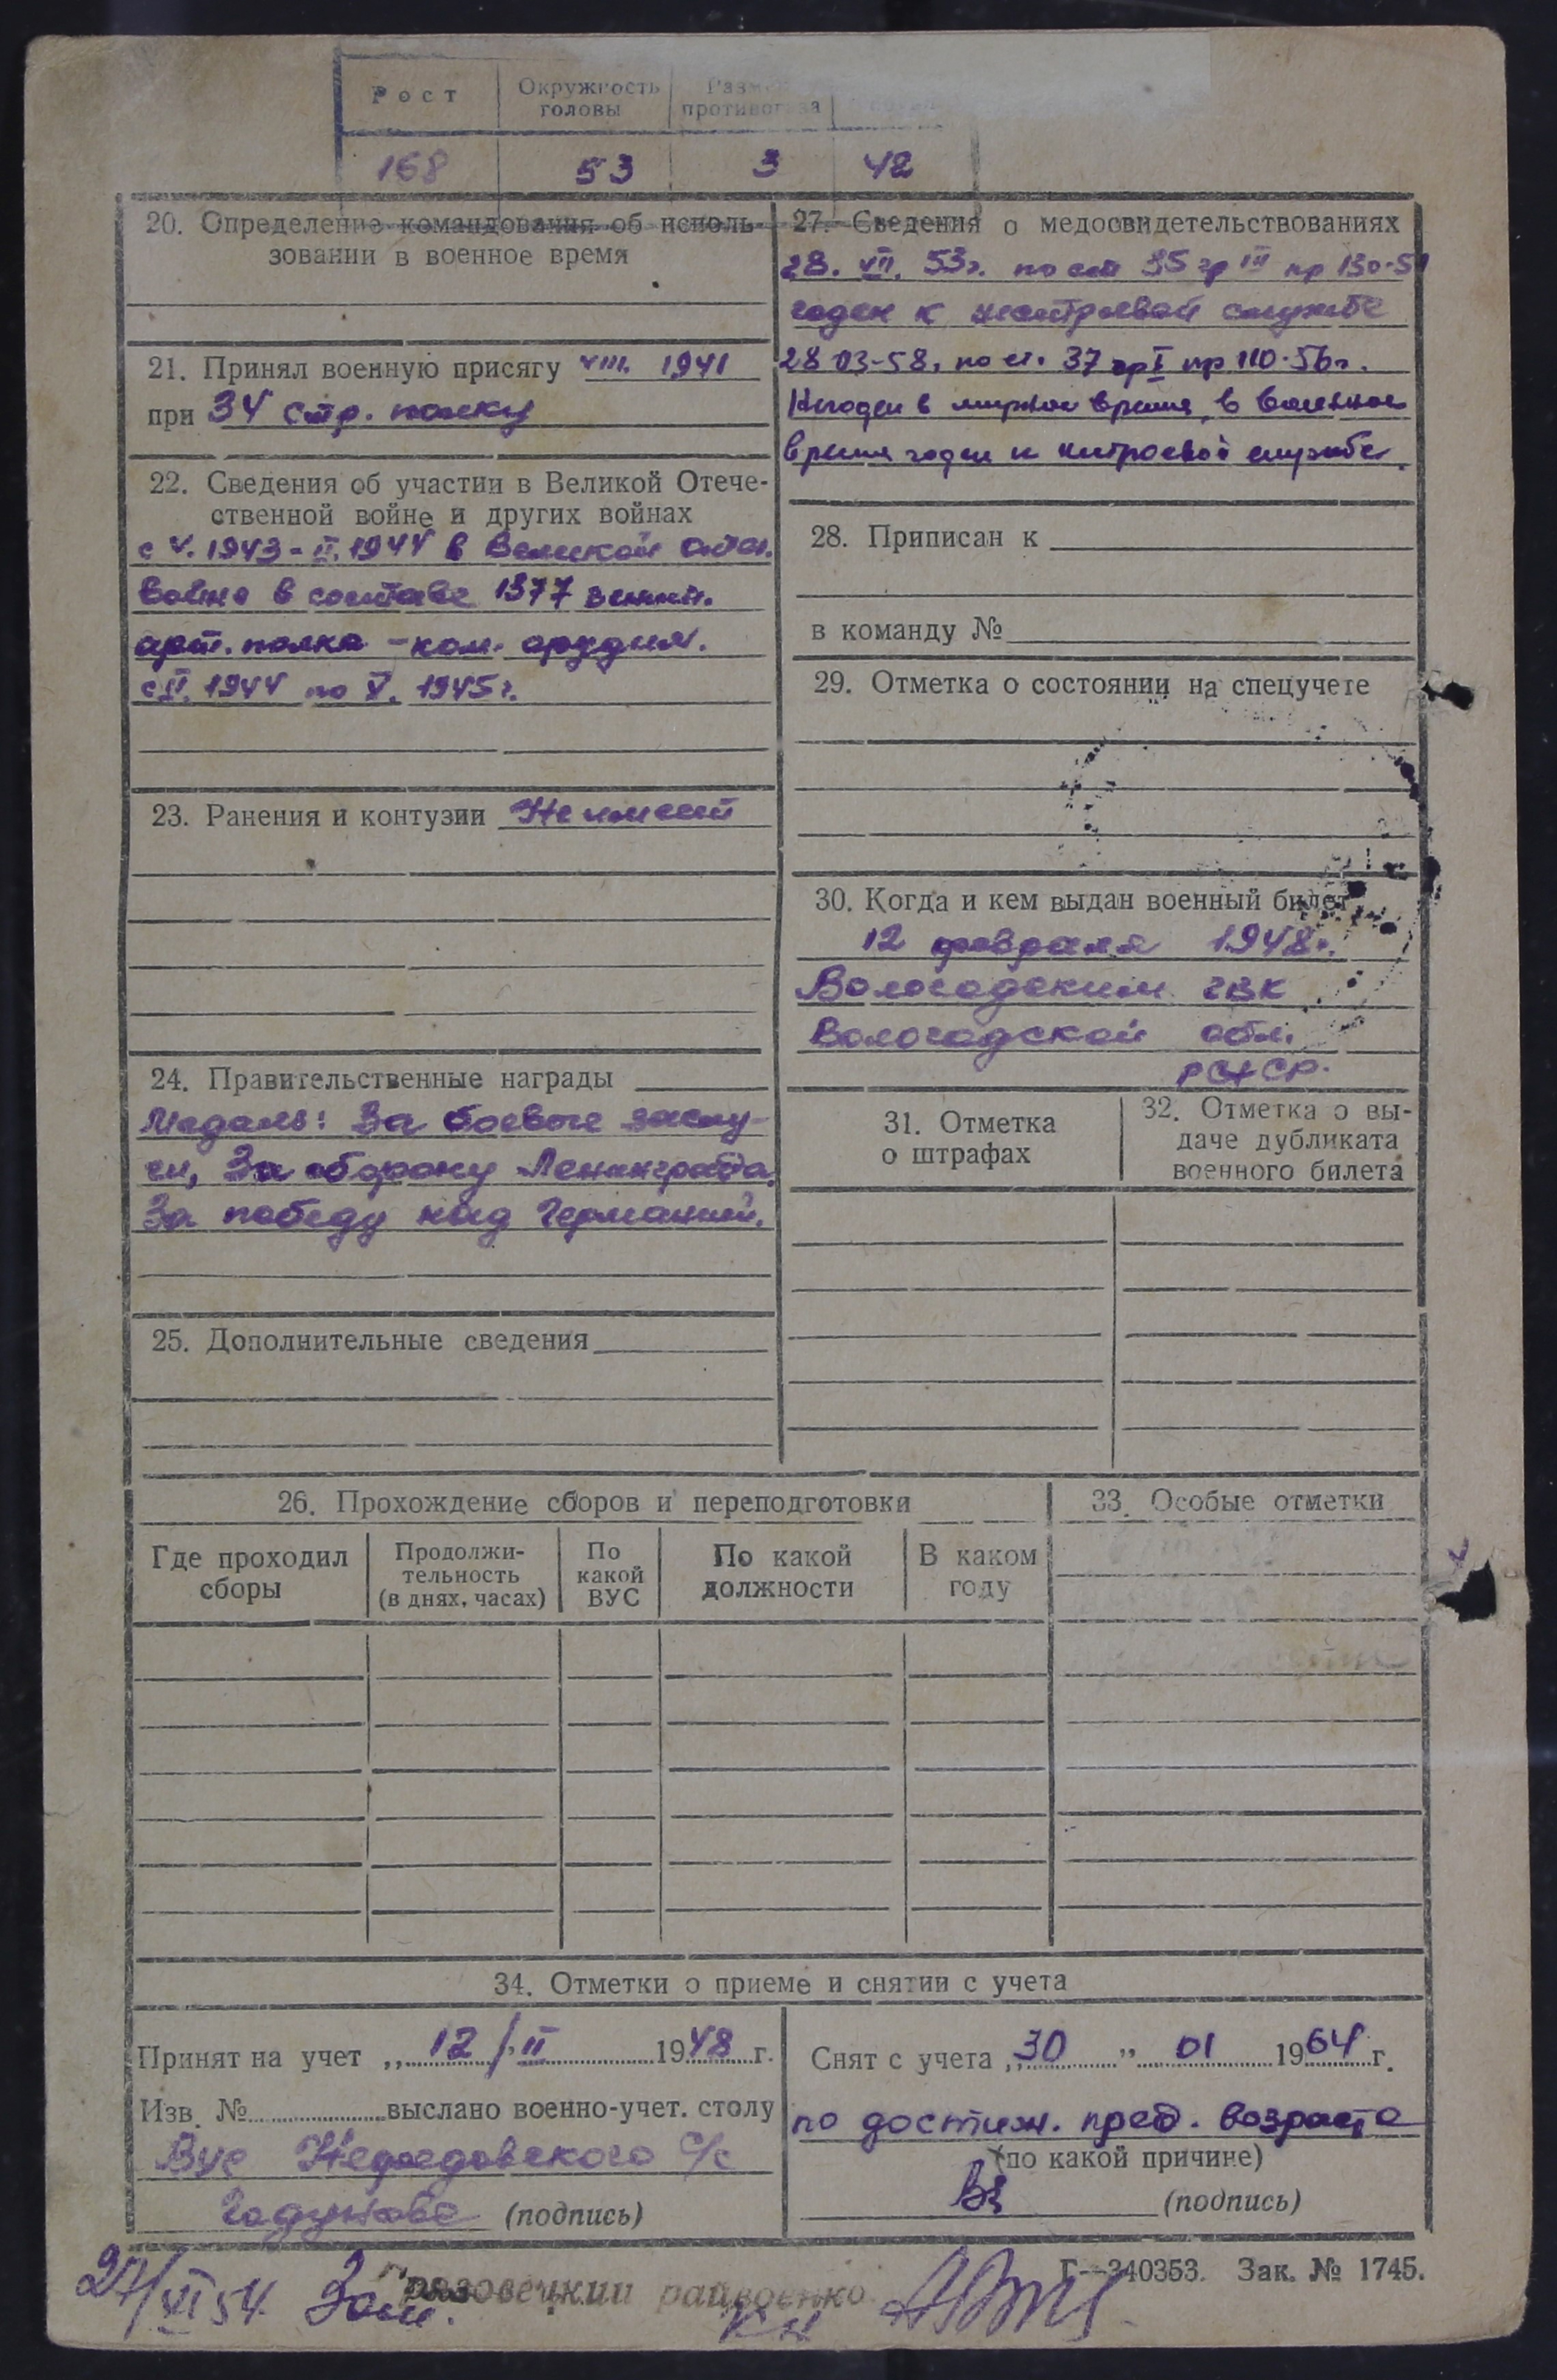 Рост
Окружность головы
противогаза
168 53 3 42
20. Определение командования об исполь-
зовании в военное время
21. Принял военную присягу VIII. 1941
при 34 стр. полку
22. Сведения об участии в Великой Отече-
ственной войне и других войнах
с V. 1943 - II. 1944 в Великой отеч.
войне в составе 1377 зенит.
арт. полка - ком. орудия.
с II. 1944 по V. 1945 г.
23. Ранения и контузии Не имеет
24. Правительственные награды
Медаль: За боевые заслу-
ги, За оборону Ленинграда.
За победу над Германией.
25. Дополнительные сведения
27. Сведения о медосвидетельствованиях
28. VII. 53г. по ст 35 гр III пр 130-51
годен к нестроевой службе
28 03-58. по ст. 37 гр I пр 110-56 г.
Негоден в мирное время, в военное
время годен к нестроевой службе.
28. Приписан к
в команду №
29. Отметка о состоянии на спецучете
30. Когда и кем выдан военный билет
12 февраля 1948 г.
Вологодским ГВК
Вологодской обл.
РСФСР.
31. Отметка
о штрафах
32. Отметка о вы-
даче дубликата
военного билета
26. Прохождение сборов и переподготовки
33. Особые отметки
Где проходил
сборы
Продолжи-
тельность
(в днях, часах)
По
какой
ВУС
По какой
должности
В каком
году
34. Отметки о приеме и снятии с учета
Принят на учет „ 12 / II 1948 г.
Изв. № выслано военно-учет. столу
Вус Нефедовского с/с
(подпись)
Снят с учета „ 30 " 01 1964 г.
по достиж. пред. возраста
(по какой причине)
(подпись)
Г—340353. Зак. № 1745.
27/XI 54 Зам. Грязовецкий райвоенко